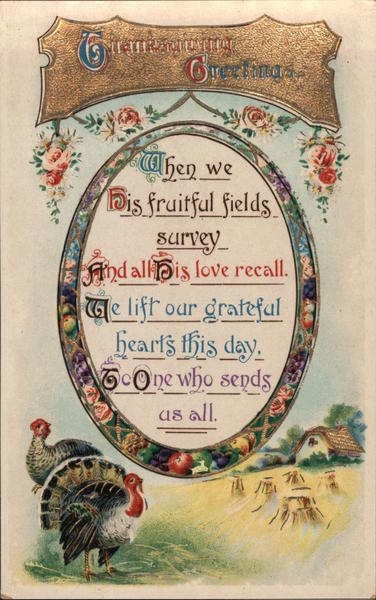 Thanksgiving
Greetings
When we
His fruitful fields
survey
And all His love recall.
We lift our grateful
hearts this day,
To One who sends
us all.